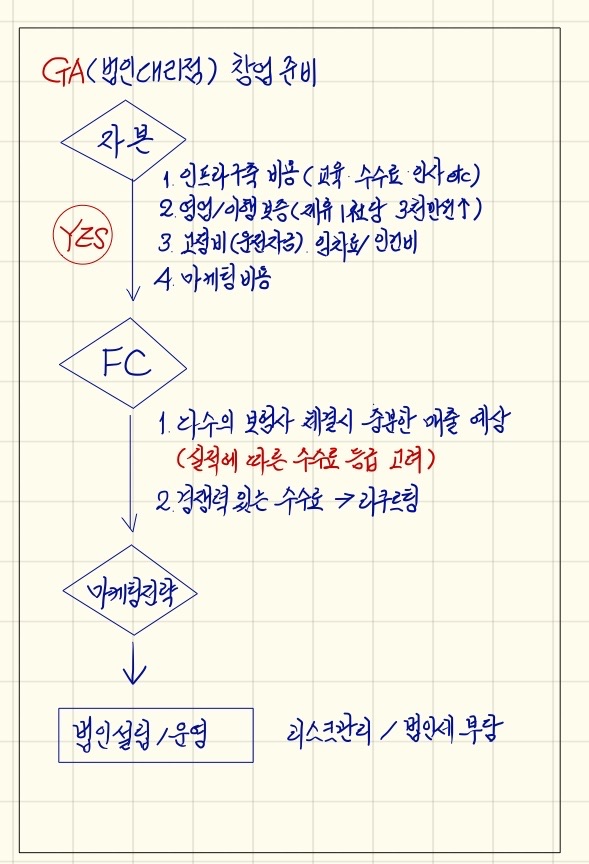 GA(법인대리점) 창업 준비
자본
1. 인프라구축 비용(교육·수수료·인사etc)
2. 영업/이행보증(제휴 1社당 3천만원↑)
YES
3. 고정비(운전자금). 임차료/인건비
4. 마케팅비용
FC
1. 다수의 보험사 체결시 충분한 매출 예상
(실적에 따른 수수료 등급 고려)
2. 경쟁력 있는 수수료 → 리쿠르팅
마케팅전략
법인설립/운영
리스크관리 / 법인세 부담